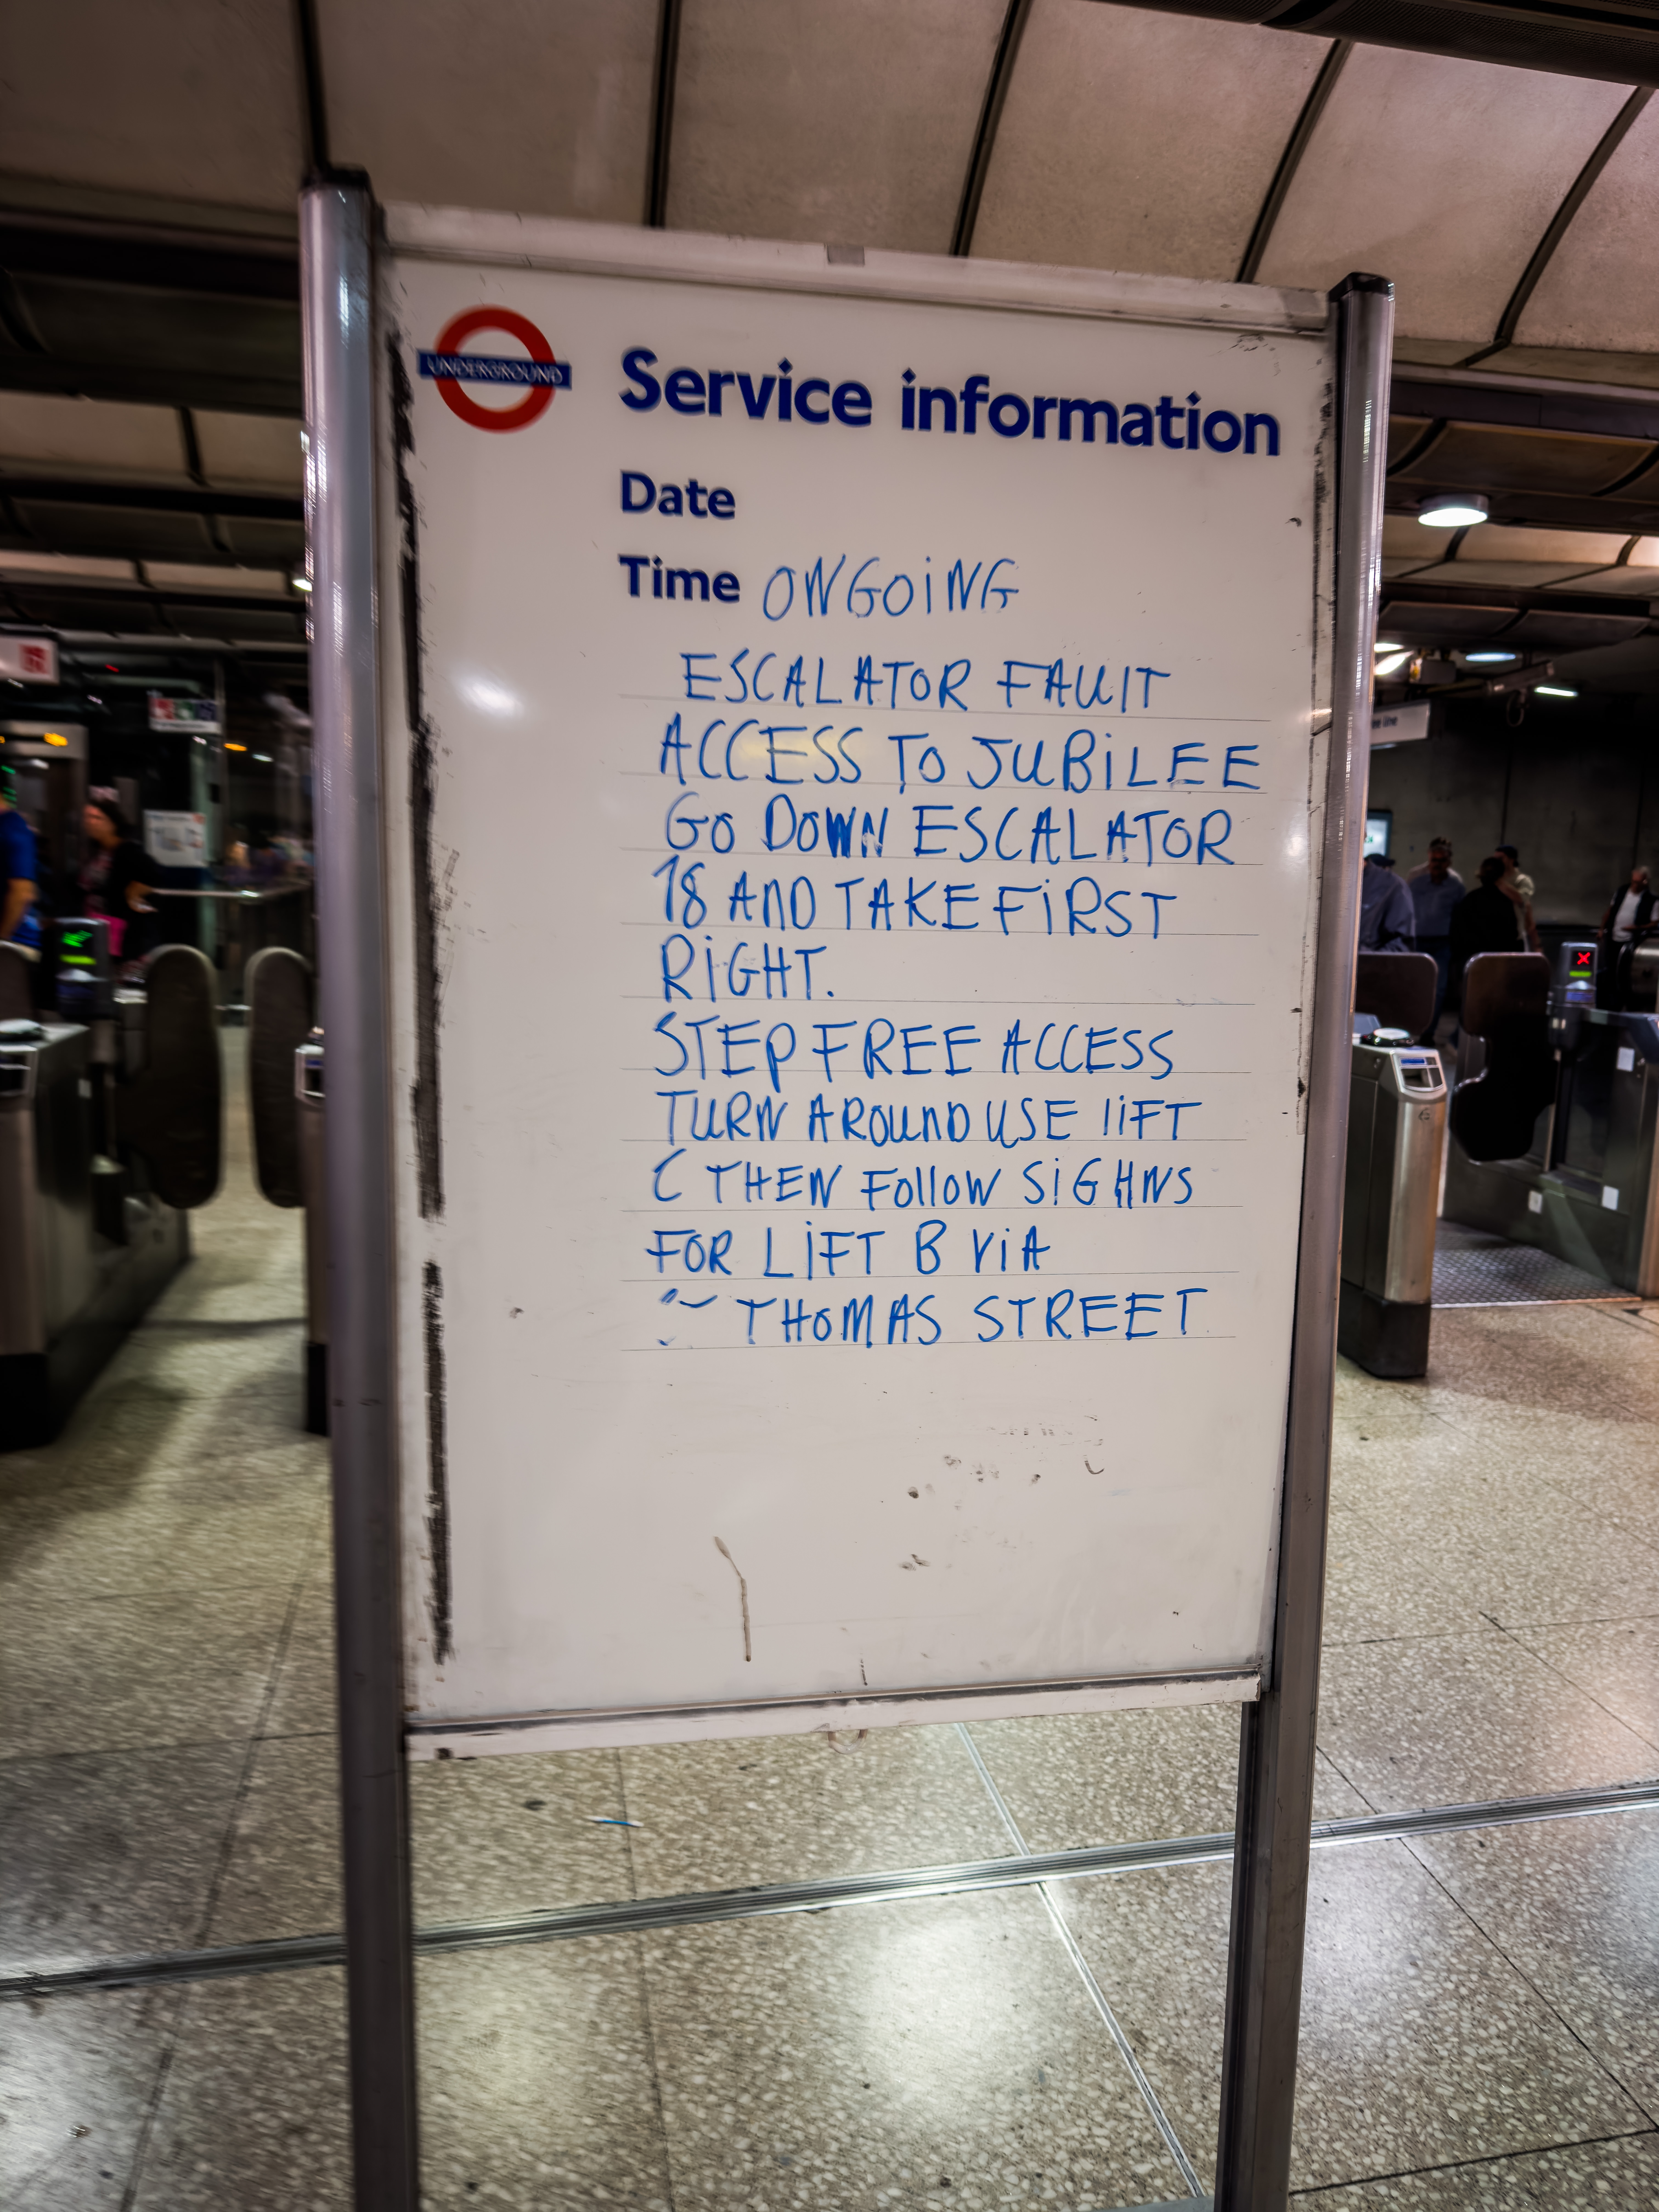 UNDERGROUND
Service information
Date
Time ONGOiNG
ESCALATOR FAUlT
ACCESS TO JUBiLEE
GO DOWN ESCALATOR
18 AND TAKE FiRST
RiGHT.
STEP FREE ACCESS
TURN AROUND USE liFT
C THEN FOllOW SiGHNS
FOR LiFT B ViA
THOMAS STREET